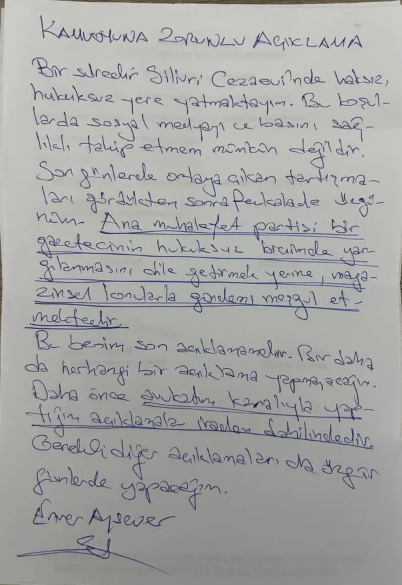 KAMUOYUNA ZORUNLU AÇIKLAMA
Bir süredir Silivri Cezaevi'nde haksız,
hukuksuz yere yatmaktayım. Bu koşul-
larda sosyal medyayı ve basını sağ-
lıklı takip etmem mümkün değildir.
Son günlerde ortaya çıkan tartışma-
ları gördükten sonra fevkalade üzgü-
nüm. Ana muhalefet partisi bir
gazetecinin hukuksuz biçimde yar-
gılanmasını dile getirmek yerine, maga-
zinsel konularla gündemi meşgul et-
mektedir.
Bu benim son açıklamamdır. Bir daha
da herhangi bir açıklama yapmayacağım.
Daha önce avukatım kanalıyla yap-
tığım açıklamalar iradem dahilindedir.
Gerekli diğer açıklamaları da özgür
günlerde yapacağım.
Enver Aysever